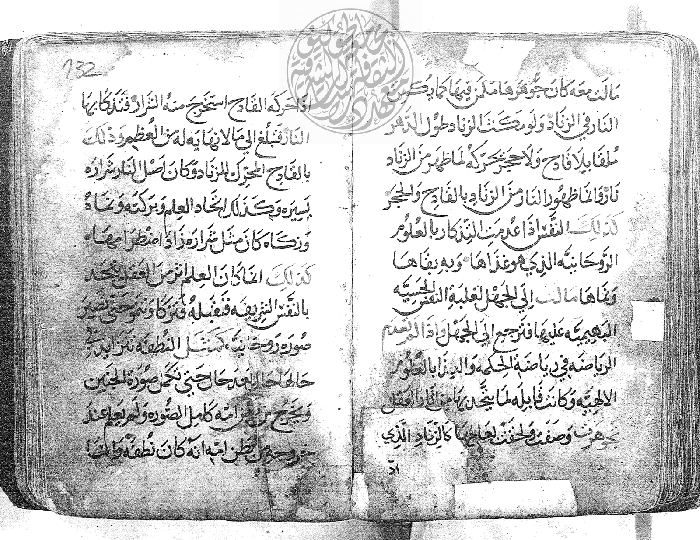 ما لن معه كان جوهرها ملكن فيها كما يكمن
النار في الزناد ولو مكثت الزناد طول الدهر
ملقا بلا قادح ولا حجر يحركه لما ظهر من الزناد
نار وانما ظهور النار من الزناد بالقادح والحجر
كذلك النفس اذا عدمت التذكار بالعلوم
الروحانيه الذي هو غذاها وبه بقاها
ونماها مالت الى الجهل لغلبة النفس الحسيه
البهيميه عليها فترجع الى الجهل واذا لم تعدم
الرياضه في رياضة الحكمه والغذا بالعلوم
الالهيه وكانت قابله لما يتحد بها من العقل
جوهرت وصفت ولحقت بعالمها كالزناد الذي
132
اذا حركه القادح استخرج منه الشرار فتذكا بها
النار فتبلغ الى ما لا نهاية له من العظم وذلك
بالقادح المحرك للزناد وكان اصل النار شراره
يسيره وكذلك اتحاد العلم وبركته ونماه
وزكاه كان مثل شراره زاد اضطرامها
كذلك اتحاد العلم من العقل يتحد
بالنفس الشريفه فتقبله فتزكا وتنمو حتى تصير
صوره روحانيه كمثل النطفه تتزايد
حالها حال بعد حال حتى تكمل صورة الجنين
ويخرج من امه كامل الصوره ولم يعلم عند
خروجه من بطن امه انه كان نطفه